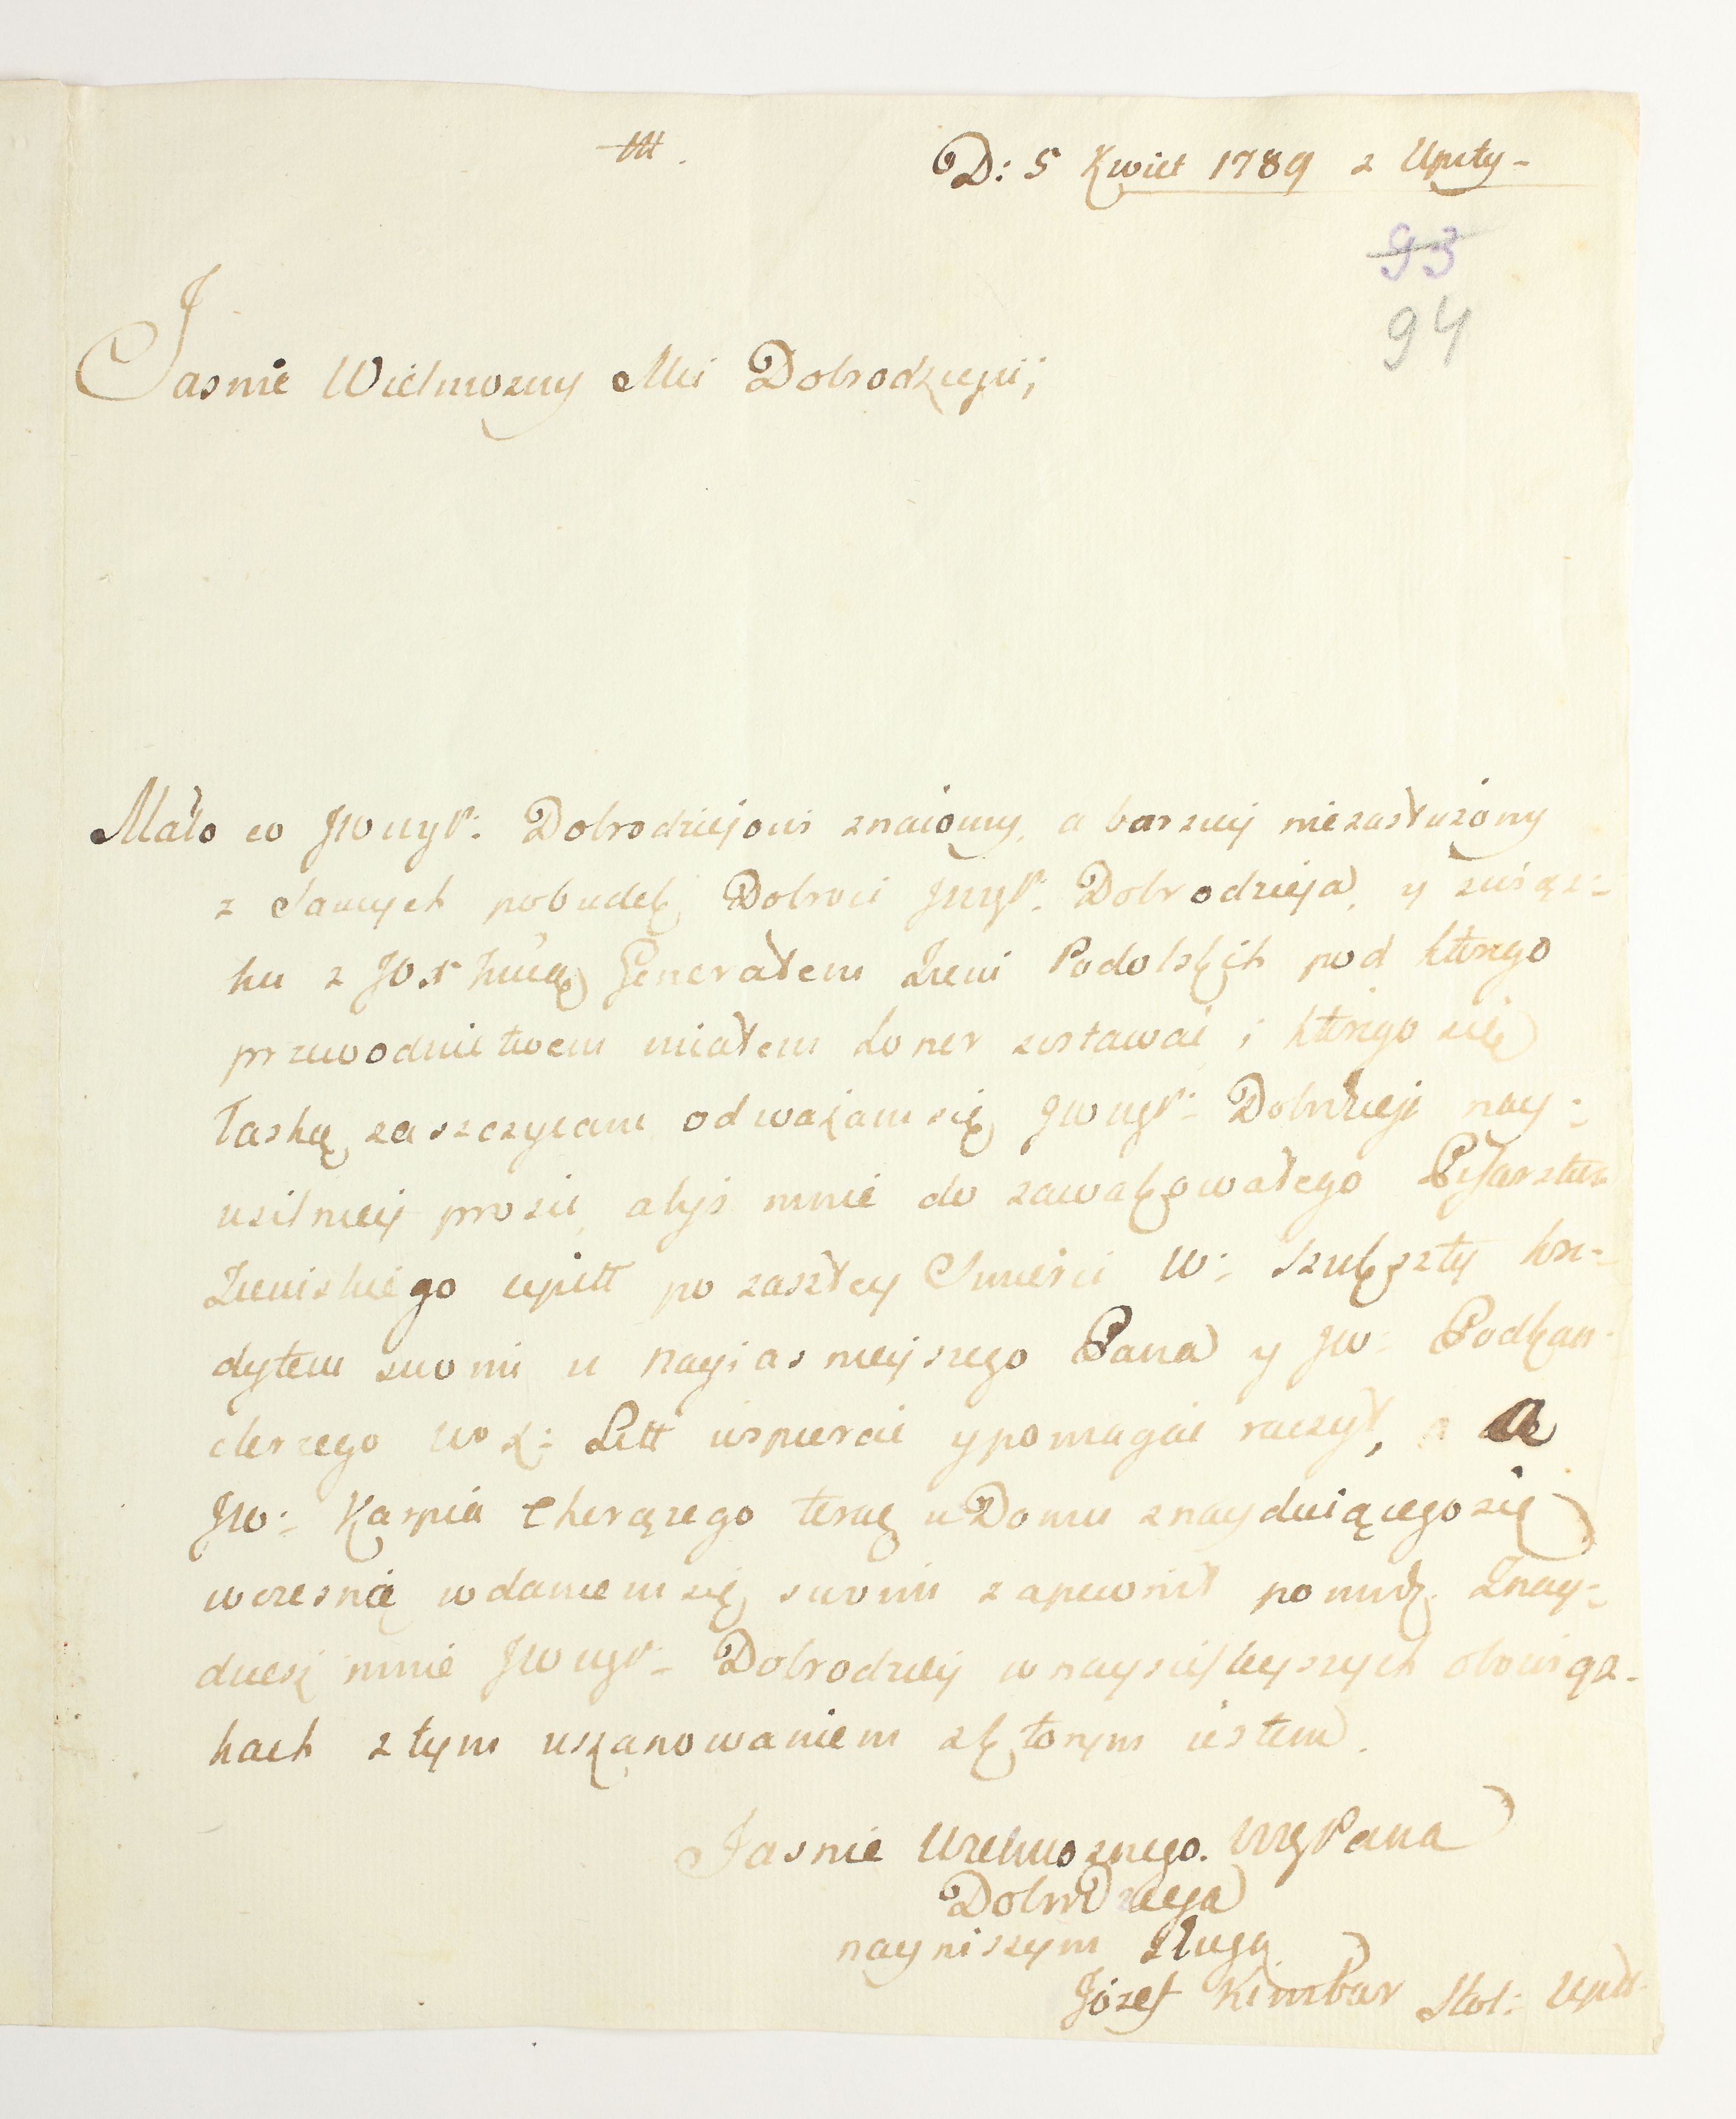 D: 5 Kwiet 1789 z Upity-
93
94
Jasnie Wielmozny Mci Dobrodzieju;
Mało co JWWgP: Dobrodziejowi znaiomy, a barziej niezasłużony
z samych pobudek Dobroci JWgP: Dobrodzieja, y związ:
ku z JOX Jmcią Generałem Ziem Podolskich pod ktorego
przewodnictwem miałem honor zostawac i ktorego się
łaską zaszczycam odważam się JWWgP: Dobrdzieje nay:
usilniej prosic, abys mnie do zawakowałego Pisarstwa
Ziemskiego upitt po zaszłey Smierci W: Szukszty kre:
dytem swoim u nayiasnieyszego Pana y JW: Podkan:
clerzego WoX: Litt wspierac y pomagac raczył, a
JW: Karpia Chorązego teraz w Domu znayduiącego się
wczesnie wdaniem się swoim zapewnił pomoc. Znay:
dziesz mnie JWWgP: Dobrodziej w nayscislejszych obowiąz:
kach z tym uszanowaniem z ktorym iestem.
Jasnie Wielmoznego WMgPana
Dobrodzieja
nayniszym Sługą
Józef Kimbar Stol: Upitt.